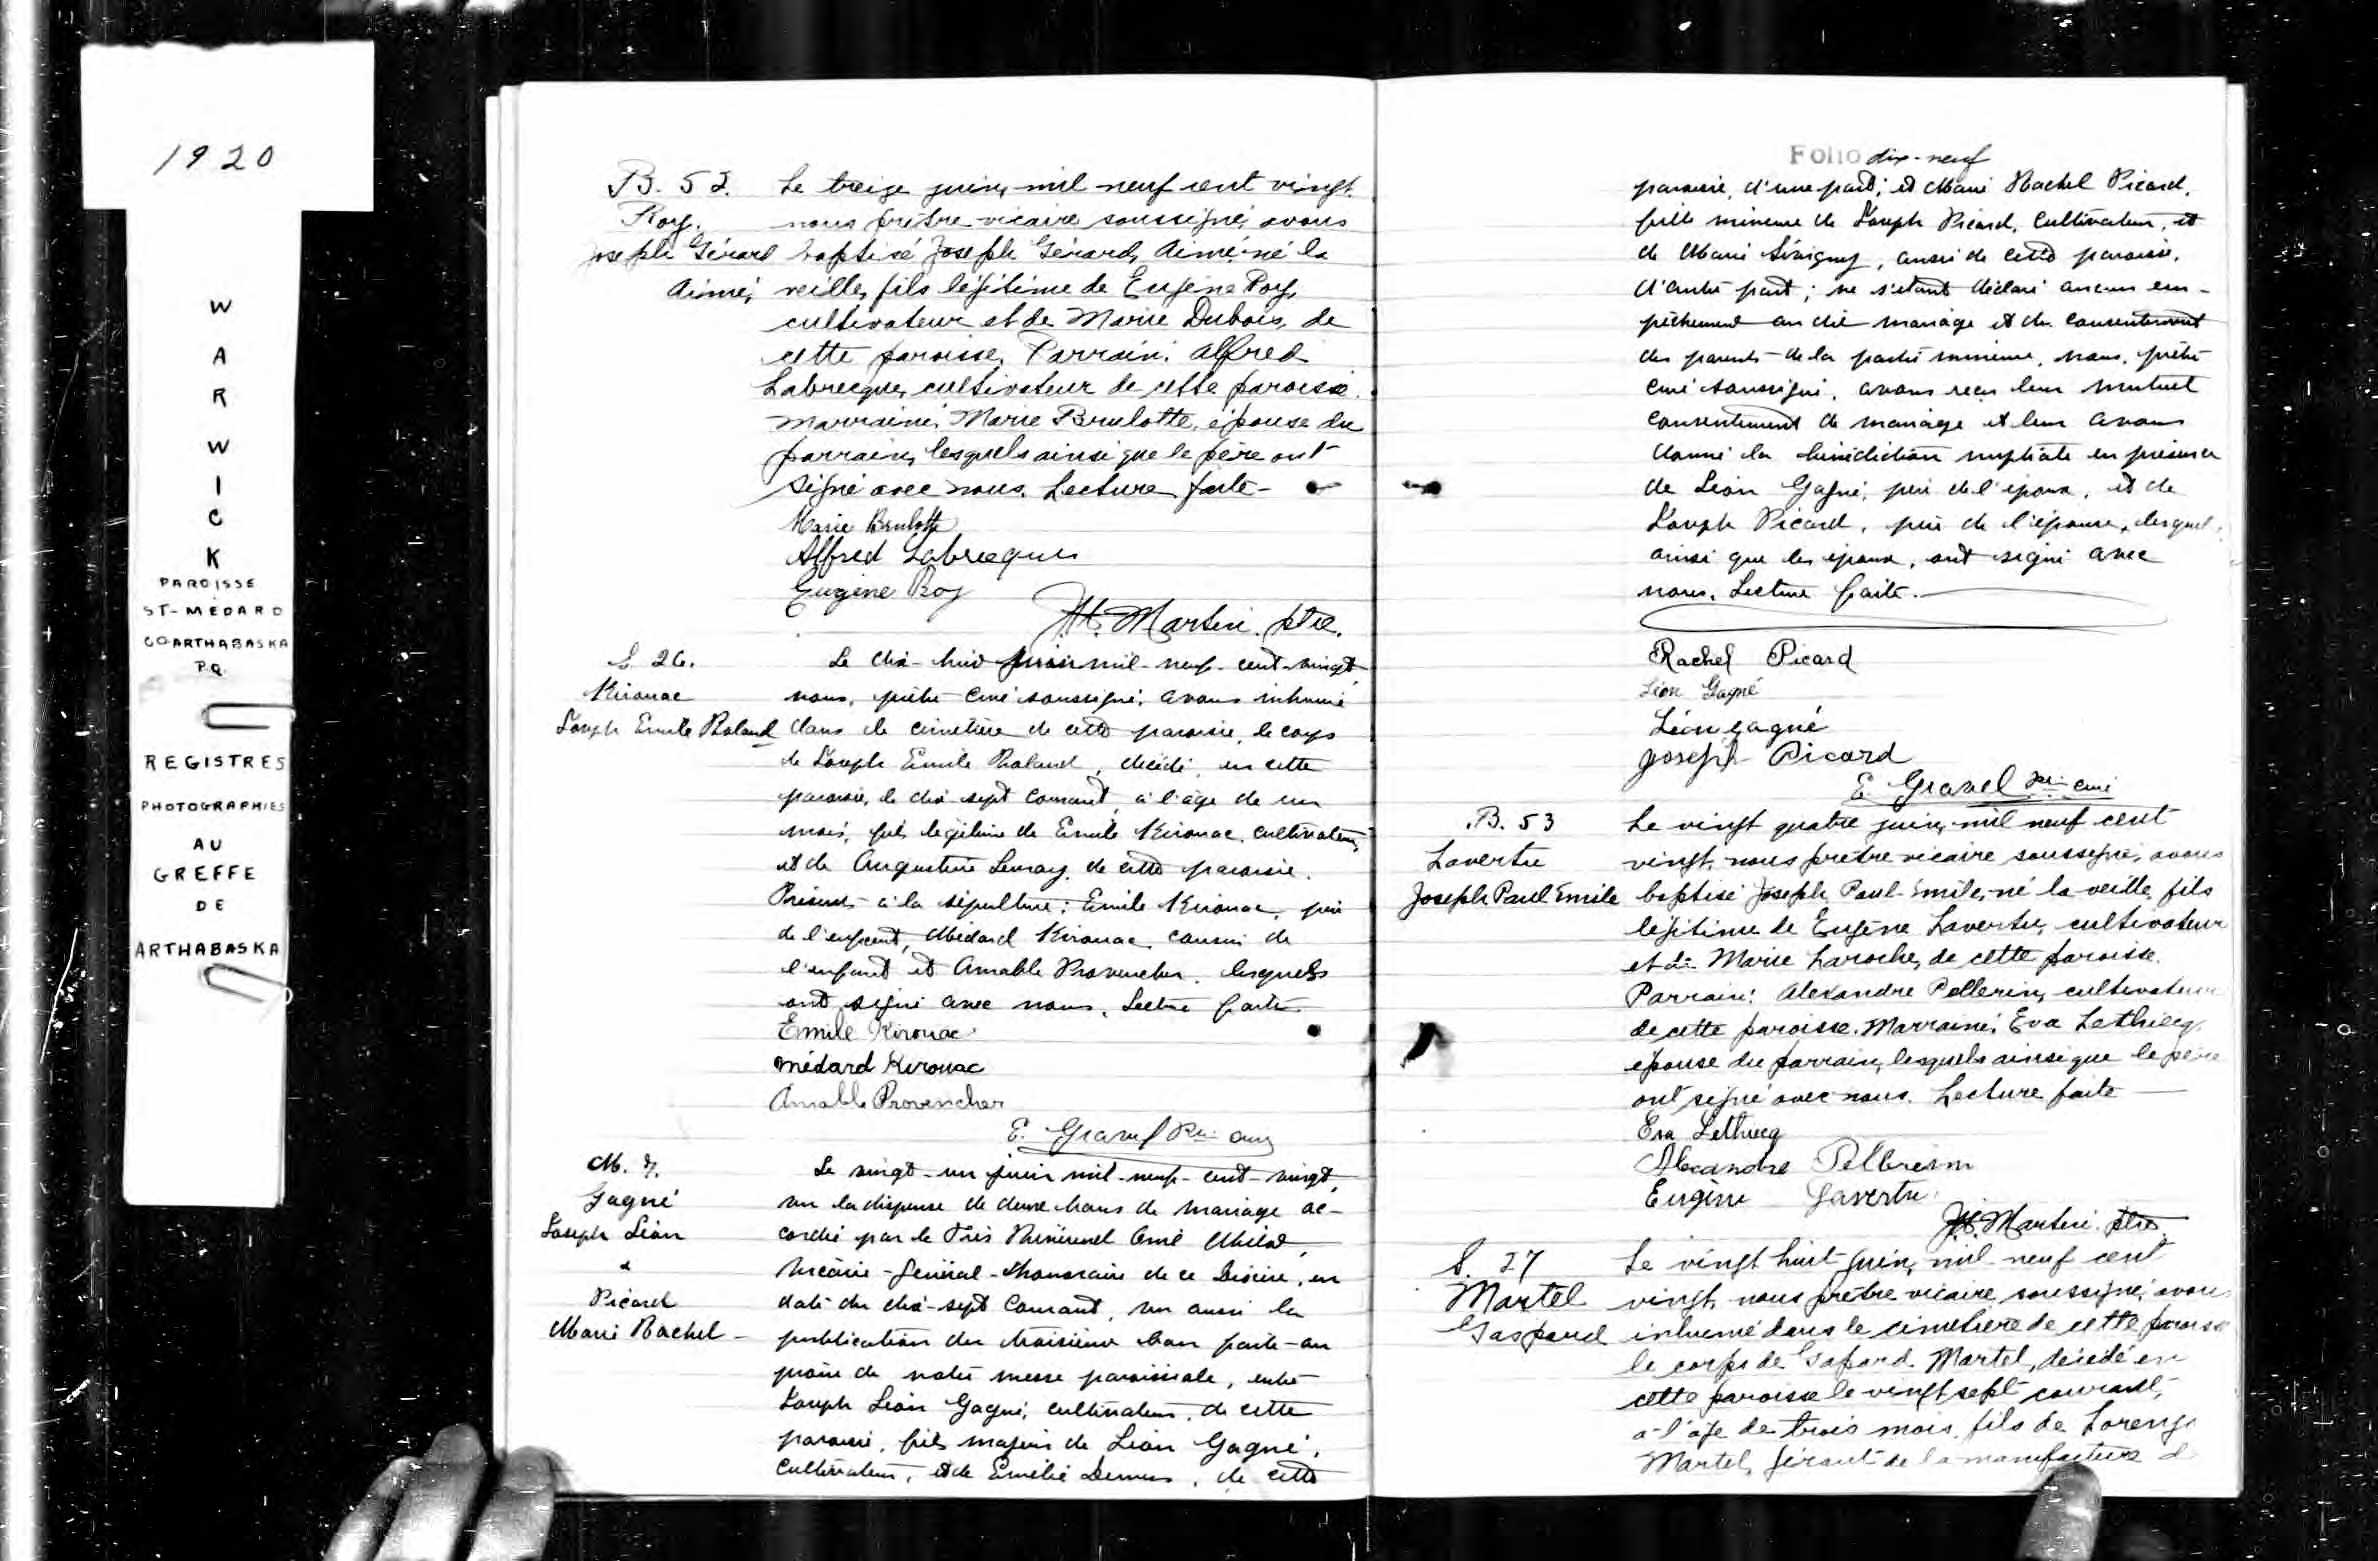 1920
W
A
R
W
I
C
K
PAROISSE
ST-MÉDARD
CO ARTHABASKA
P.Q.
REGISTRES
PHOTOGRAPHIES
AU
GREFFE
DE
ARTHABASKA
B. 52. Le treize juin, mil neuf cent vingt
Roy. nous prêtre vicaire soussigné, avons
Joseph Gérard baptisé Joseph Gérard, Aimé, né la
Aimé, veille, fils légitime de Eugène Roy,
cultivateur et de Marie Dubois, de
cette paroisse, Parrain, Alfred
Labrecque, cultivateur de cette paroisse.
marraine, Marie Brulotte, épouse du
parrain, lesquels ainsi que le père ont
signé avec nous. Lecture faite-
Marie Brulotte
Alfred Labrecque
Eugène Roy
Martin. ptre.
S. 26. Le dix-huit juin mil-neuf-cent-vingt
Kirouac nous, prêtre curé soussigné, avons inhumé
Joseph Emile Roland dans le cimetière de cette paroisse, le corps
de Joseph Emile Roland, décédé, en cette
paroisse, le dix-sept courant, à l'âge de un
mois, fils légitime de Emile Kirouac, cultivateur,
et de Augustine Lemay, de cette paroisse.
Présents à la sépulture: Emile Kirouac, père
de l'enfant, Médard Kirouac, cousin de
l'enfant et Amable Provencher, lesquels
ont signé avec nous. Lecture faite
Emile Kirouac
Médard Kirouac
Amable Provencher
E. Gravel Ptre curé
M. 7. Le vingt-un juin mil-neuf-cent-vingt,
Gagné vu la dispense de deux bans de mariage ac-
Joseph Léon cordée par le Très Révérend
& Vicaire-général-honoraire de ce Diocèse, en
Picard date du dix-sept courant, vu aussi la
Marie Rachel- publication du troisième ban faite au
prône de notre messe paroissiale, entre
Joseph Léon Gagné, cultivateur, de cette
paroisse, fils majeur de Léon Gagné,
cultivateur, et de Emélie Demers, de cette
Folio dix-neuf
paroisse, d'une part; et Marie Rachel Picard,
fille mineure de Joseph Picard, cultivateur, et
de Marie Sévigny, aussi de cette paroisse,
d'autre part; ne s'étant déclaré aucun em-
pêchement au dit mariage et du consentement
des parents de la partie mineure, nous, prêtre
curé soussigné, avons reçu leur mutuel
consentement de mariage et leur avons
donné la bénédiction nuptiale en présence
de Léon Gagné, père de l'époux, et de
Joseph Picard, père de l'épouse, lesquels,
ainsi que les époux, ont signé avec
nous. Lecture faite.
Rachel Picard
Léon Gagné
Léon gagné
Joseph Picard
E. Gravel Ptre curé
B. 53 Le vingt quatre juin, mil neuf cent
Lavertu vingt, nous prêtre vicaire soussigné, avons
Joseph Paul Emile baptisé Joseph, Paul-Emile, né la veille, fils
légitime de Eugène Lavertu, cultivateur
et de Marie Laroche, de cette paroisse.
Parrain: Alexandre Pellerin, cultivateur
de cette paroisse. Marraine, Eva Lethiecq,
épouse du parrain, lesquels ainsi que le père
ont signé avec nous. Lecture faite
Eva Lethiecq
Alexandre Pellerin
Eugène Lavertu
Martin. ptre
S. 27 Le vingt huit juin, mil neuf cent
Martel vingt, nous prêtre vicaire soussigné, avons
Gaspard inhumé dans le cimetière de cette paroisse
le corps de Gaspard Martel, décédé en
cette paroisse le vingt sept courant,
à l'âge de trois mois, fils de Lorenzo
Martel, gérant de la manufacture d